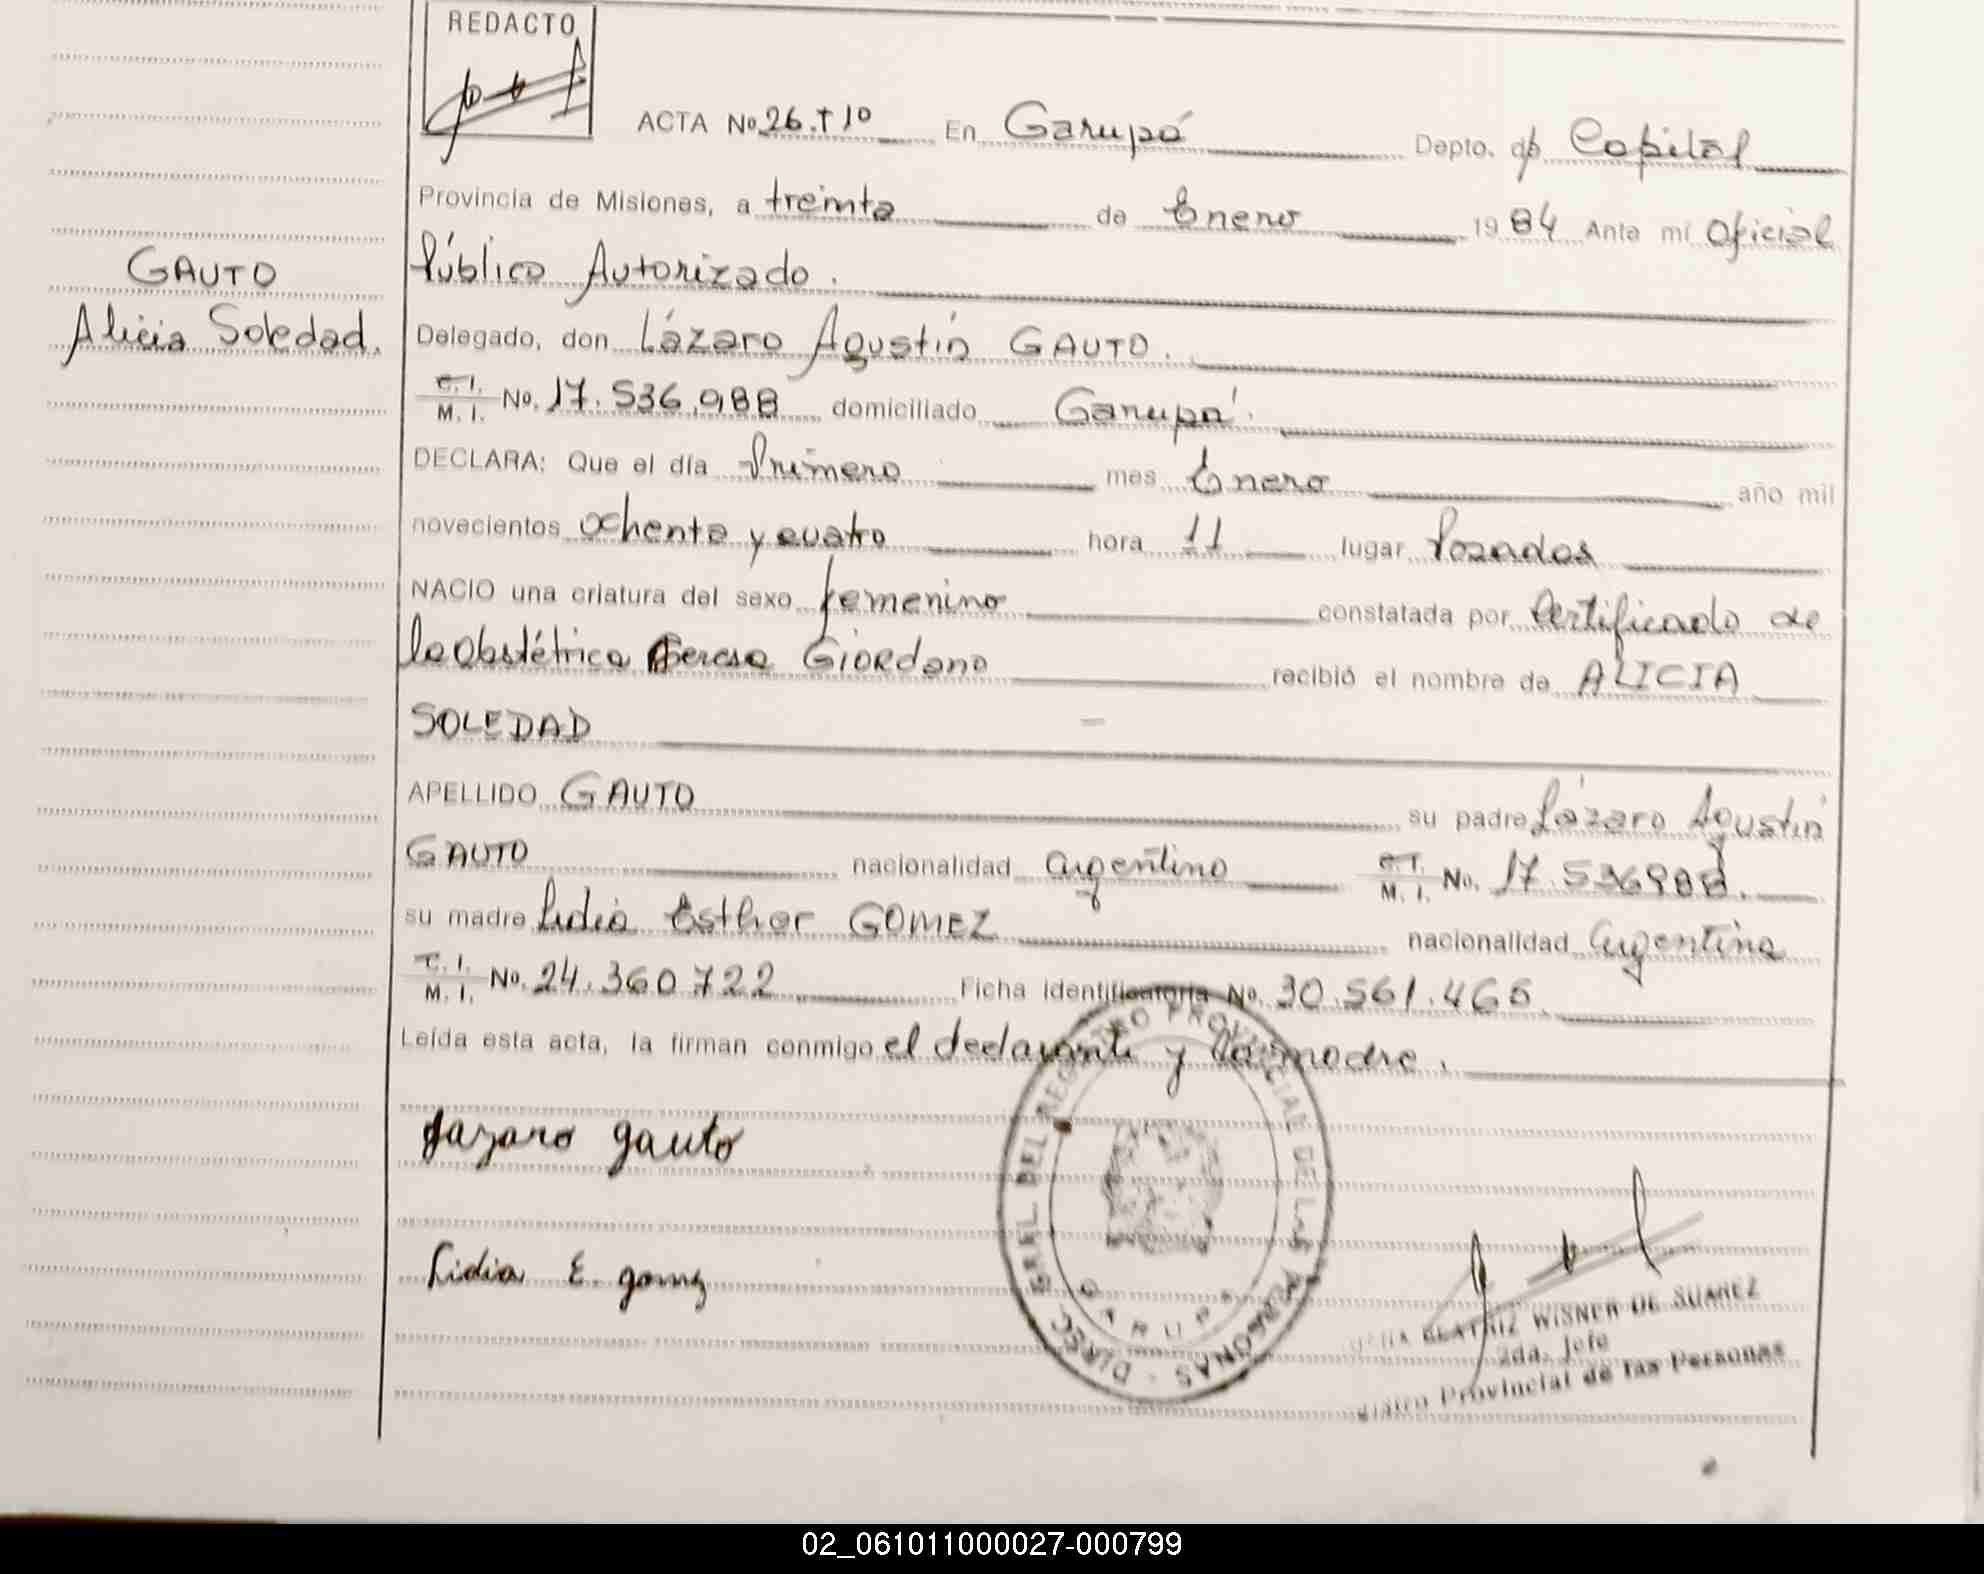 REDACTO
ACTA No. 26. T I° En Garupá Depto. de Capital
Provincia de Misiones, a treinta de Enero 1984 Ante mí Oficial
Público Autorizado.
GAUTO
Alicia Soledad.
Delegado, don Lázaro Agustín GAUTO.
C. I.
M. I. No. 17.536.988 domiciliado Garupá.
DECLARA: Que el día Primero mes Enero año mil
novecientos ochenta y cuatro hora 11 lugar Posadas
NACIO una criatura del sexo femenino constatada por Certificado de
la Obstétrica Teresa Giordano recibió el nombre de ALICIA
SOLEDAD
APELLIDO GAUTO su padre Lázaro Agustín
GAUTO nacionalidad argentino C. I.
M. I. No. 17.536988.
su madre Lidia Esther GOMEZ nacionalidad Argentina
C. I.
M. I. No. 24.360722 Ficha identificatoria No. 30.561.466.
Leída esta acta, la firman conmigo el declarante y la madre.
Lazaro gauto
Lidia E. gomez
DIREC. GRAL. DEL REGISTRO PROVINCIAL DE LAS PERSONAS
GARUPA
BEATRIZ WISNER DE SUAREZ
2da. Jefe
Registro Provincial de las Personas
02_061011000027-000799